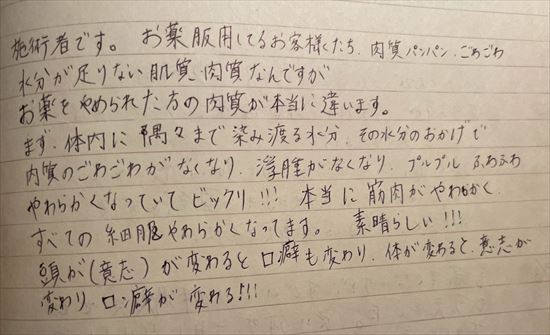 施術者です。 お薬服用してるお客様たち、肉質パンパン、ごわごわ
水分が足りない肌質、肉質なんですが
お薬をやめられた方の肉質が本当に違います。
まず、体内に隅々まで染み渡る水分、その水分のおかげで
肉質のごわごわがなくなり、浮腫がなくなり、プルプルふわふわ
やわらかくなっていてビックリ!!! 本当に筋肉がやわらかく、
すべての細胞やわらかくなってます。 素晴らしい!!!
頭が(意志)が変わると口癖も変わり、体が変わると、意志が
変わり、口癖が変わる!!!